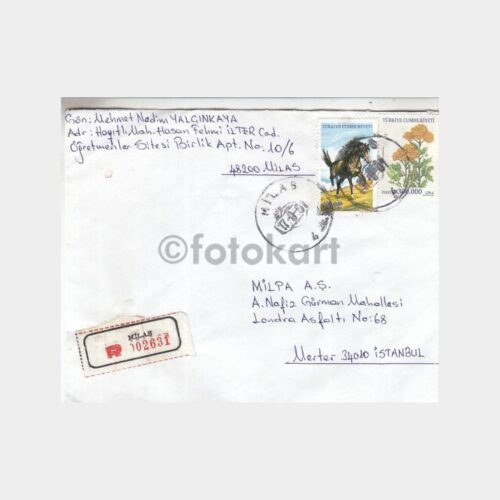 Gön: Mehmet Nedim YALÇINKAYA
Adr: Hayıtlı Mah. Hasan Fehmi İLTER Cad.
Öğretmenler Sitesi Birlik Apt. No: 10/6
48200 MİLAS
TÜRKİYE CUMHURİYETİ
TÜRKİYE CUMHURİYETİ
300.000
MİLAS
©fotokart
MİLPA A.Ş.
A. Nafiz Gürman Mahallesi
Londra Asfaltı No: 68
Merter 34010 İSTANBUL
MİLAS
R 002631